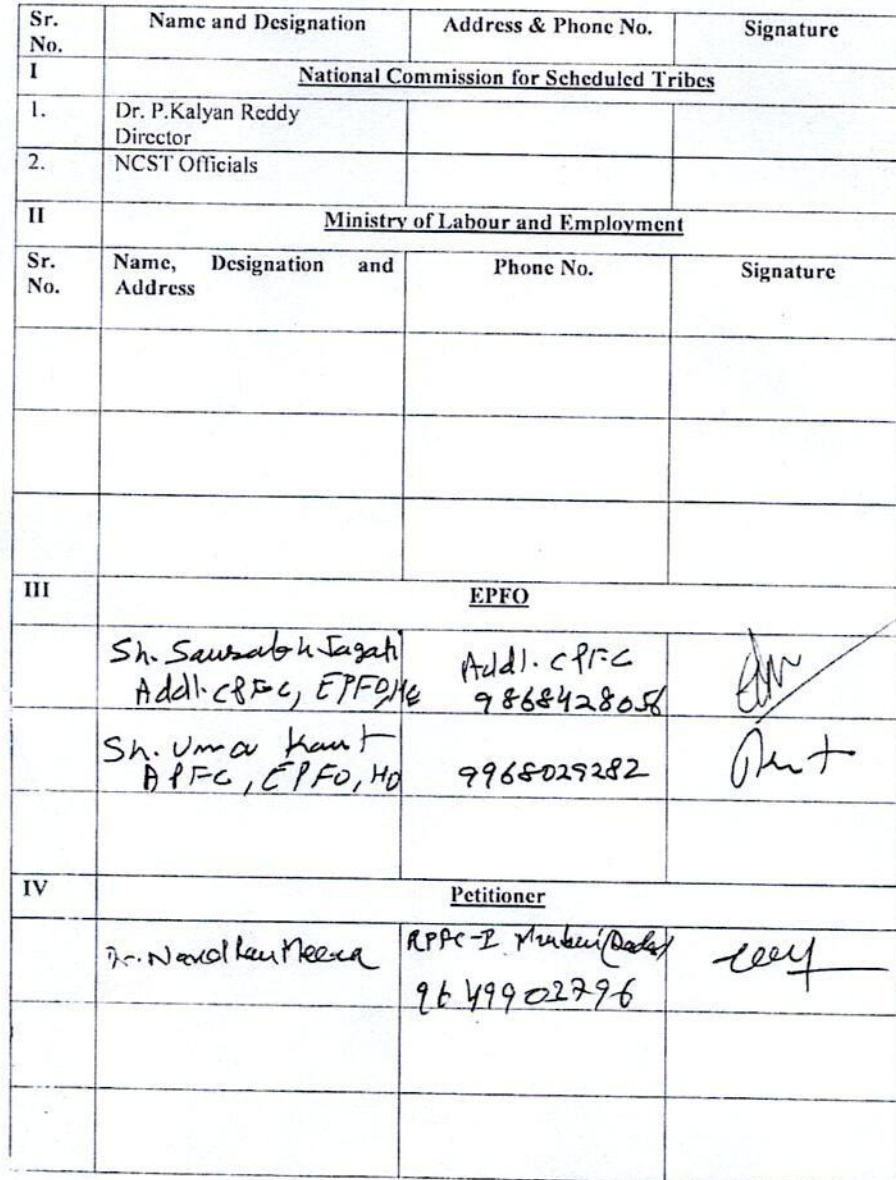 Sr. No. Name and Designation Address & Phone No. Signature
I National Commission for Scheduled Tribes
1. Dr. P.Kalyan Reddy
Director
2. NCST Officials
II Ministry of Labour and Employment
Sr. No. Name, Designation and Address Phone No. Signature
III EPFO
Sh. Saurabh Jagati Addl. CPFC
Addl. CPFC, EPFO, 9868428056
Sh. Uma Kant
APFC, EPFO, HO 9968029282
IV Petitioner
Dr. Nand Meena RPFC-I Mumbai
9649902796